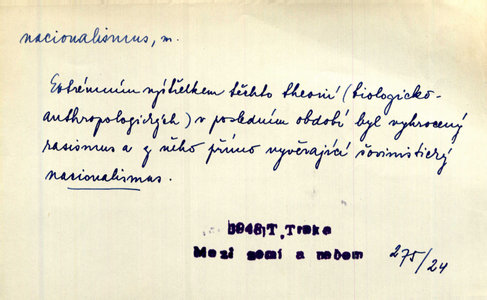 nacionalismus, m.
Extrémním výstřelkem těchto theorií (biologicko-
anthropologických) v posledním období byl vyhrocený
rasismus a z něho přímo vyvěrající šovinistický
nasionalismus.
1948, T. Trnka
Mezi zemí a nebem
275/24